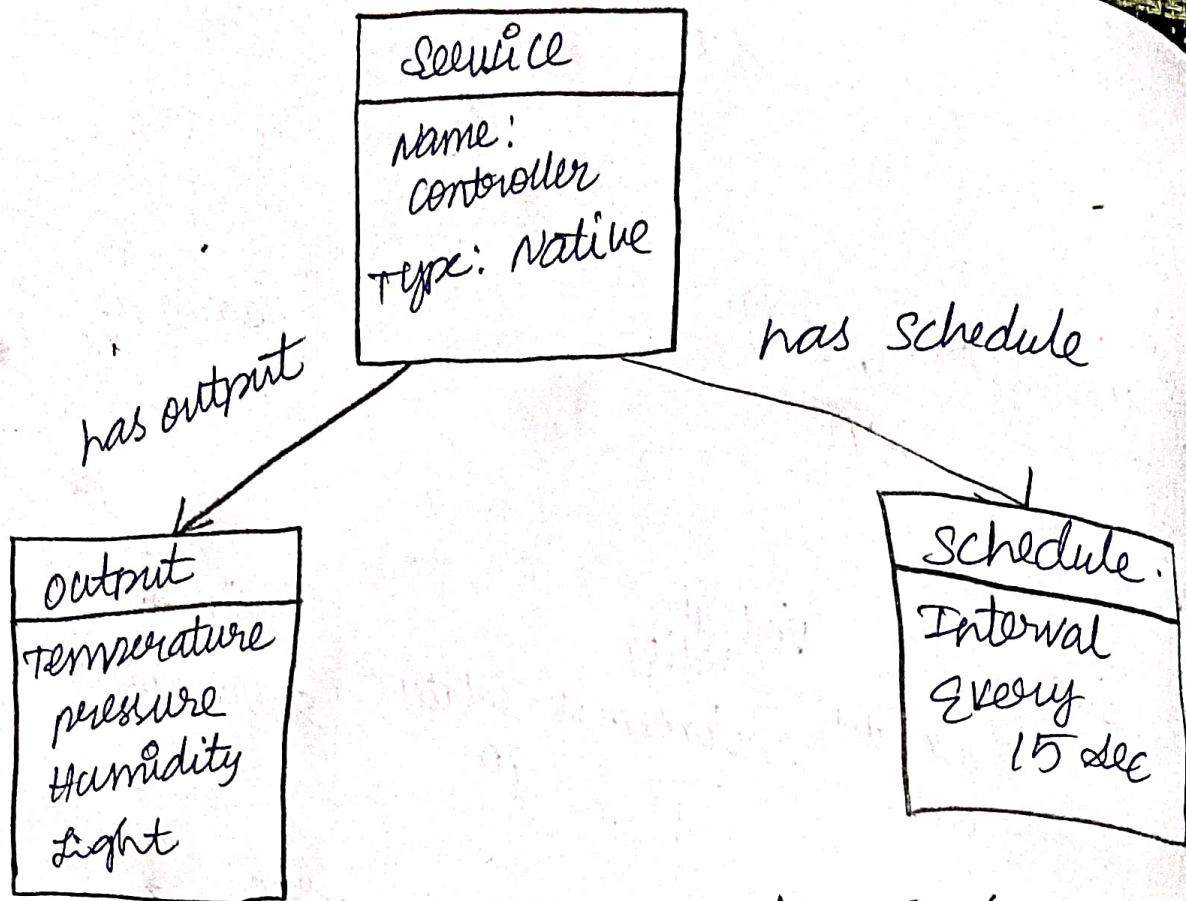 Service
Name:
controller
Type: Native
has output
has schedule
output
Temperature
pressure
Humidity
Light
schedule.
Interval
Every
15 sec